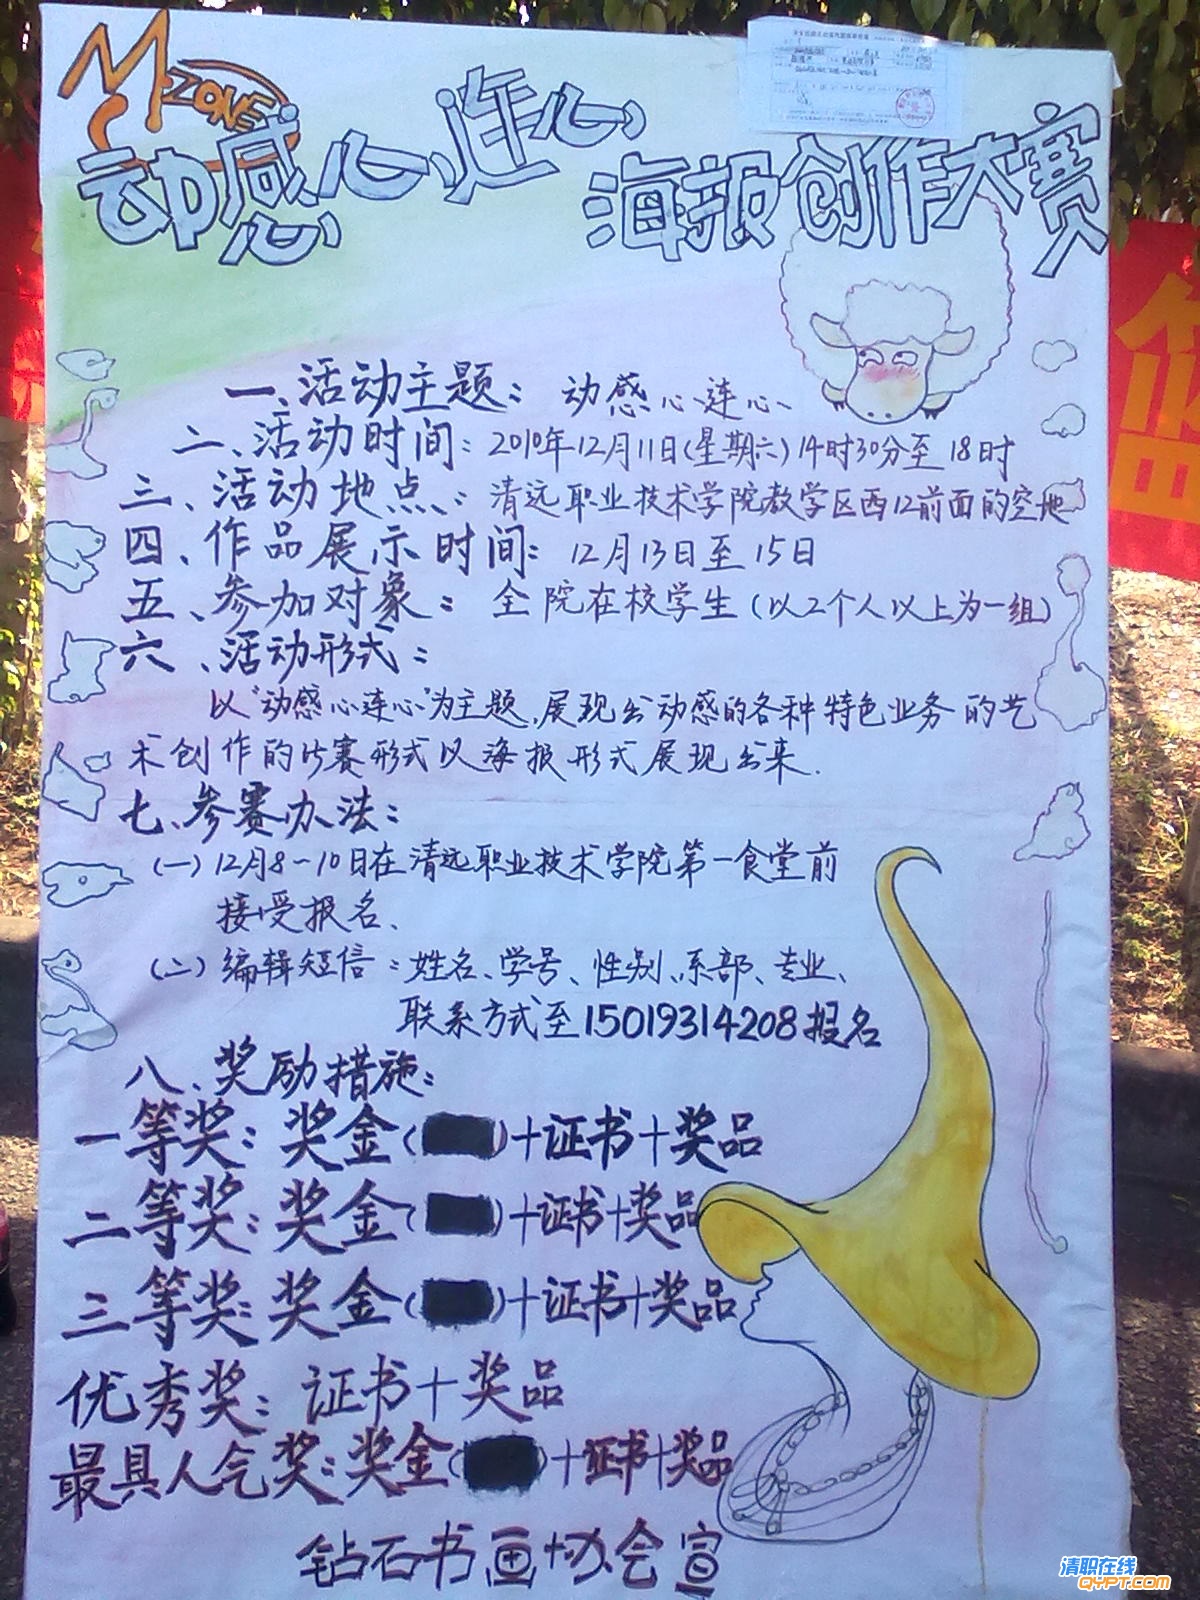 M-ZONE
动感心连心
海报创作大赛
一、活动主题：动感心连心
二、活动时间：2010年12月11日(星期六)14时30分至18时
三、活动地点：清远职业技术学院教学区西12前面的空地
四、作品展示时间：12月13日至15日
五、参加对象：全院在校学生(以2个人以上为一组)
六、活动形式：
以"动感心连心"为主题,展现出动感的各种特色业务的艺
术创作的比赛形式以海报形式展现出来.
七、参赛办法：
(一)12月8~10日在清远职业技术学院第一食堂前
接受报名、
(二)编辑短信：姓名、学号、性别、系部、专业、
联系方式至15019314208报名
八、奖励措施：
一等奖：奖金( )+证书+奖品
二等奖：奖金( )+证书+奖品
三等奖：奖金( )+证书+奖品
优秀奖：证书+奖品
最具人气奖：奖金( )+证书+奖品
钻石书画协会宣
清职在线
QYPT.COM